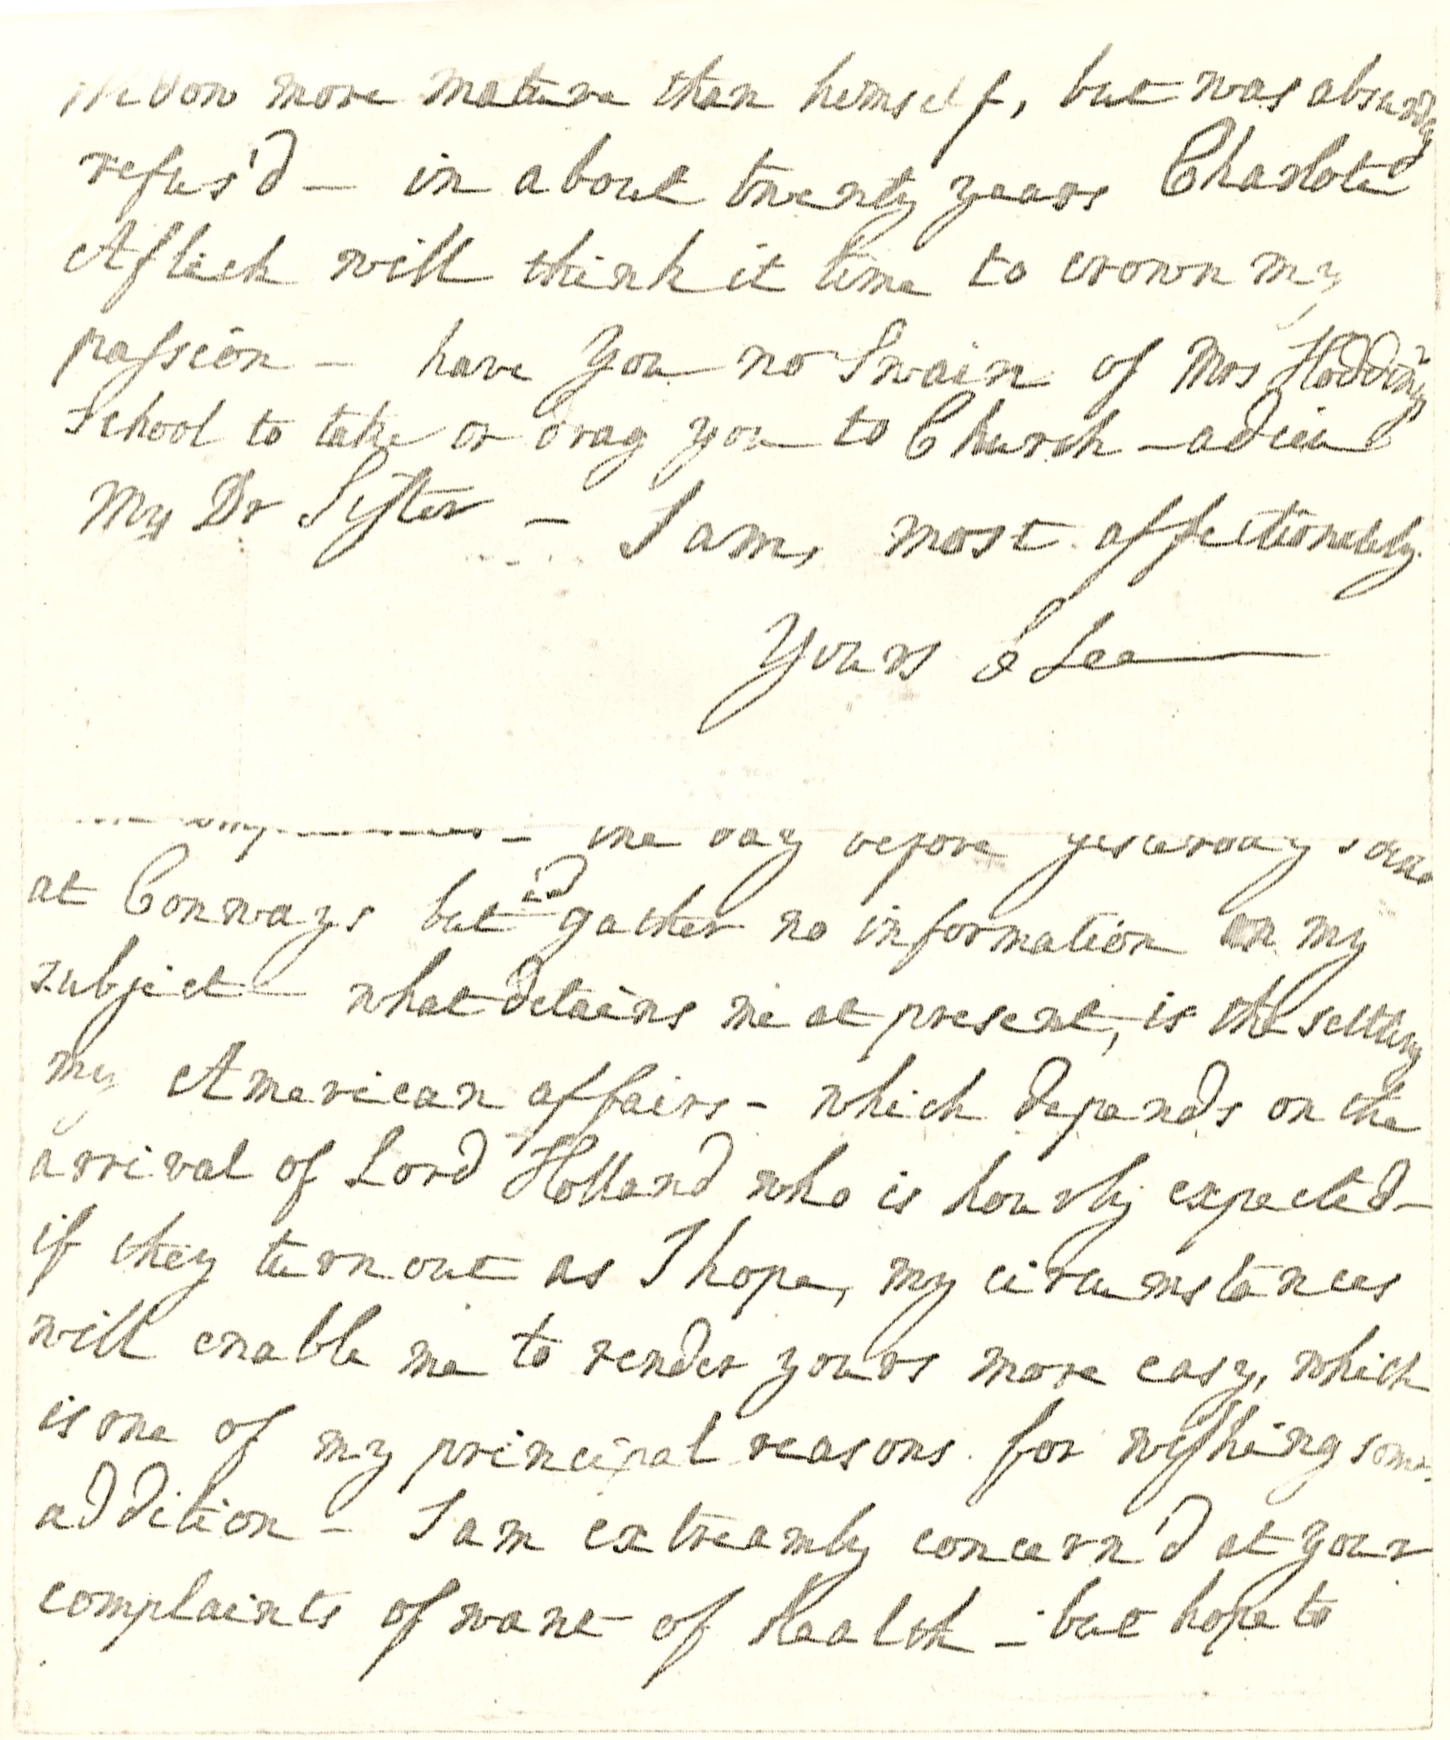 more mature than himself, but was absurdly
refus'd — in about twenty years Charlote
Afleck will think it time to crown my
passion — have you no Swain of Mrs Hoddings
School to take or drag you to Church — adieu
My Dr Sister — I am, most affectionately
Yours C Lee
the day before yesterday
at Conways but gather no information on my
subject — what detains me at present, is the settling
my American affairs — which depends on the
arrival of Lord Holland who is hourly expected —
if they turn out as I hope, my circumstances
will enable me to render yours more easy, which
is one of my principal reasons for wishing some
addition — I am extreamly concern'd at your
complaints of want of Health — but hope to